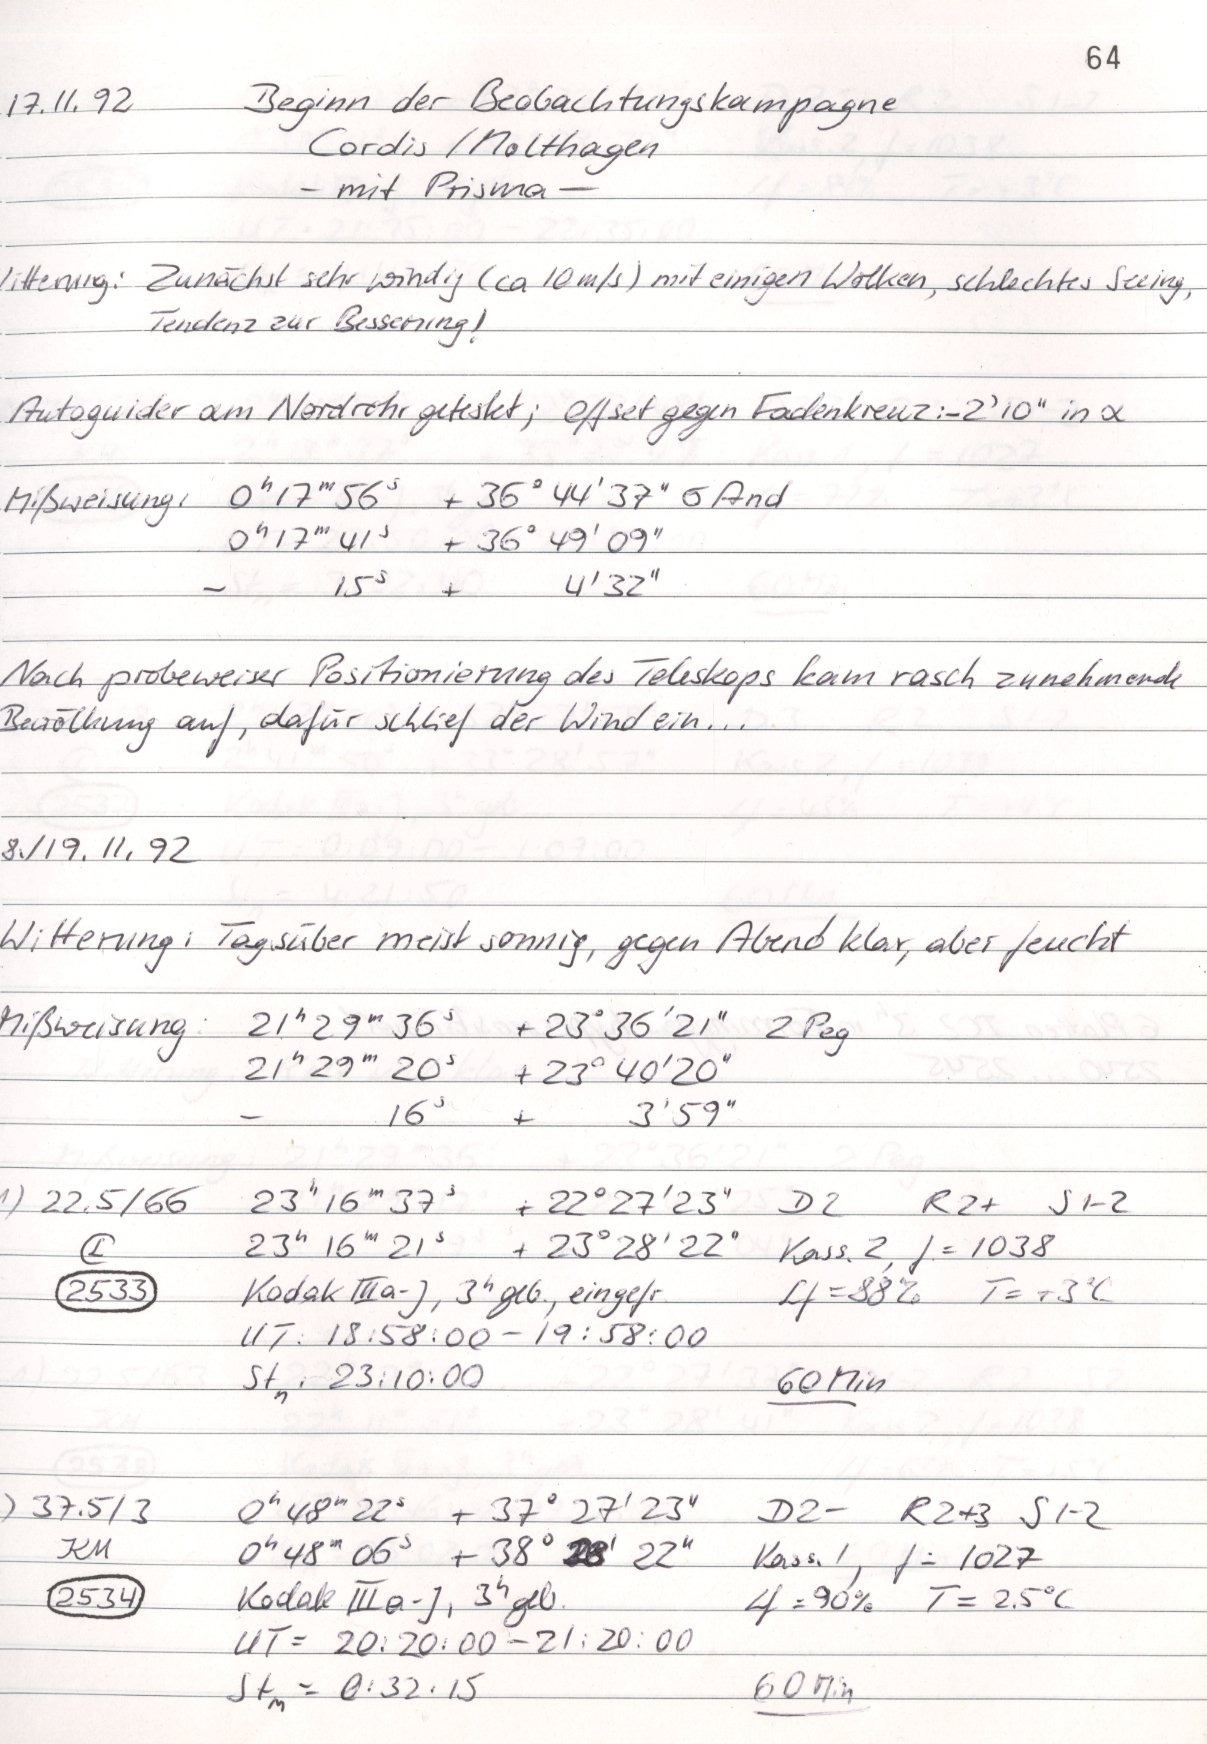 64
17.11.92 Beginn der Beobachtungskampagne
Cordis / Molthagen
- mit Prisma -
Witterung: Zunächst sehr windig (ca 10 m/s) mit einigen Wolken, schlechtes Seeing,
Tendenz zur Besserung!
Autoguider am Nordrohr getestet; Offset gegen Fadenkreuz: -2'10" in α
Mißweisung: 0ʰ17ᵐ56ˢ + 36°44'37" σ And
0ʰ17ᵐ41ˢ + 36°49'09"
- 15ˢ + 4'32"
Nach probeweiser Positionierung des Teleskops kam rasch zunehmende
Bewölkung auf, dafür schlief der Wind ein...
8./19.11.92
Witterung: Tagsüber meist sonnig, gegen Abend klar, aber feucht
Mißweisung: 21ʰ29ᵐ36ˢ +23°36'21" 2 Peg
21ʰ29ᵐ20ˢ +23°40'20"
- 16ˢ + 3'59"
1) 22.5/66 23ʰ16ᵐ37ˢ +22°27'23" D2 R2+ S1-2
23ʰ16ᵐ21ˢ +23°28'22" Kass. 2, f = 1038
2533 Kodak IIIa-J, 3ʰ geb., eingefr Lf = 88% T = +3°C
UT: 18:58:00 - 19:58:00
Stₙ: 23:10:00 60 Min
) 37.5/3 0ʰ48ᵐ22ˢ +37°27'23" D2- R2+3 S1-2
KM 0ʰ48ᵐ06ˢ +38°28'22" Kass. 1, f = 1027
2534 Kodak IIIa-J, 3ʰ geb. Lf = 90% T = 2.5°C
UT = 20:20:00 - 21:20:00
Stₘ = 0:32:15 60 Min